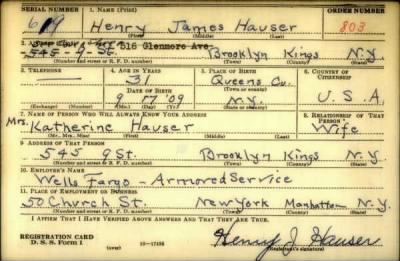 SERIAL NUMBER 1. NAME (Print) ORDER NUMBER
619 Henry James Hauser 803
(First) (Middle) (Last)
2. ADDRESS (Print) 516 Glenmore Ave.
545-9-St. Brooklyn Kings N.Y.
(Number and street or R. F. D. number) (Town) (County) (State)
3. TELEPHONE 4. AGE IN YEARS 5. PLACE OF BIRTH 6. COUNTRY OF CITIZENSHIP
31 Queens Co.
DATE OF BIRTH (Town or county)
9 17 '09 N.Y. U.S.A.
(Exchange) (Number) (Mo.) (Day) (Yr.) (State or country)
7. NAME OF PERSON WHO WILL ALWAYS KNOW YOUR ADDRESS 8. RELATIONSHIP OF THAT PERSON
Mrs. Katherine Hauser Wife
(Mr., Mrs., Miss) (First) (Middle) (Last)
9. ADDRESS OF THAT PERSON
545 9 St. Brooklyn Kings N.Y.
(Number and street or R. F. D. number) (Town) (County) (State)
10. EMPLOYER'S NAME
Wells Fargo - Armored Service
11. PLACE OF EMPLOYMENT OR BUSINESS
50 Church St. New York Manhattan N.Y.
(Number and street or R. F. D. number) (Town) (County) (State)
I AFFIRM THAT I HAVE VERIFIED ABOVE ANSWERS AND THAT THEY ARE TRUE.
REGISTRATION CARD
D. S. S. Form 1 (over) 16—17105 Henry J. Hauser
(Registrant's signature)